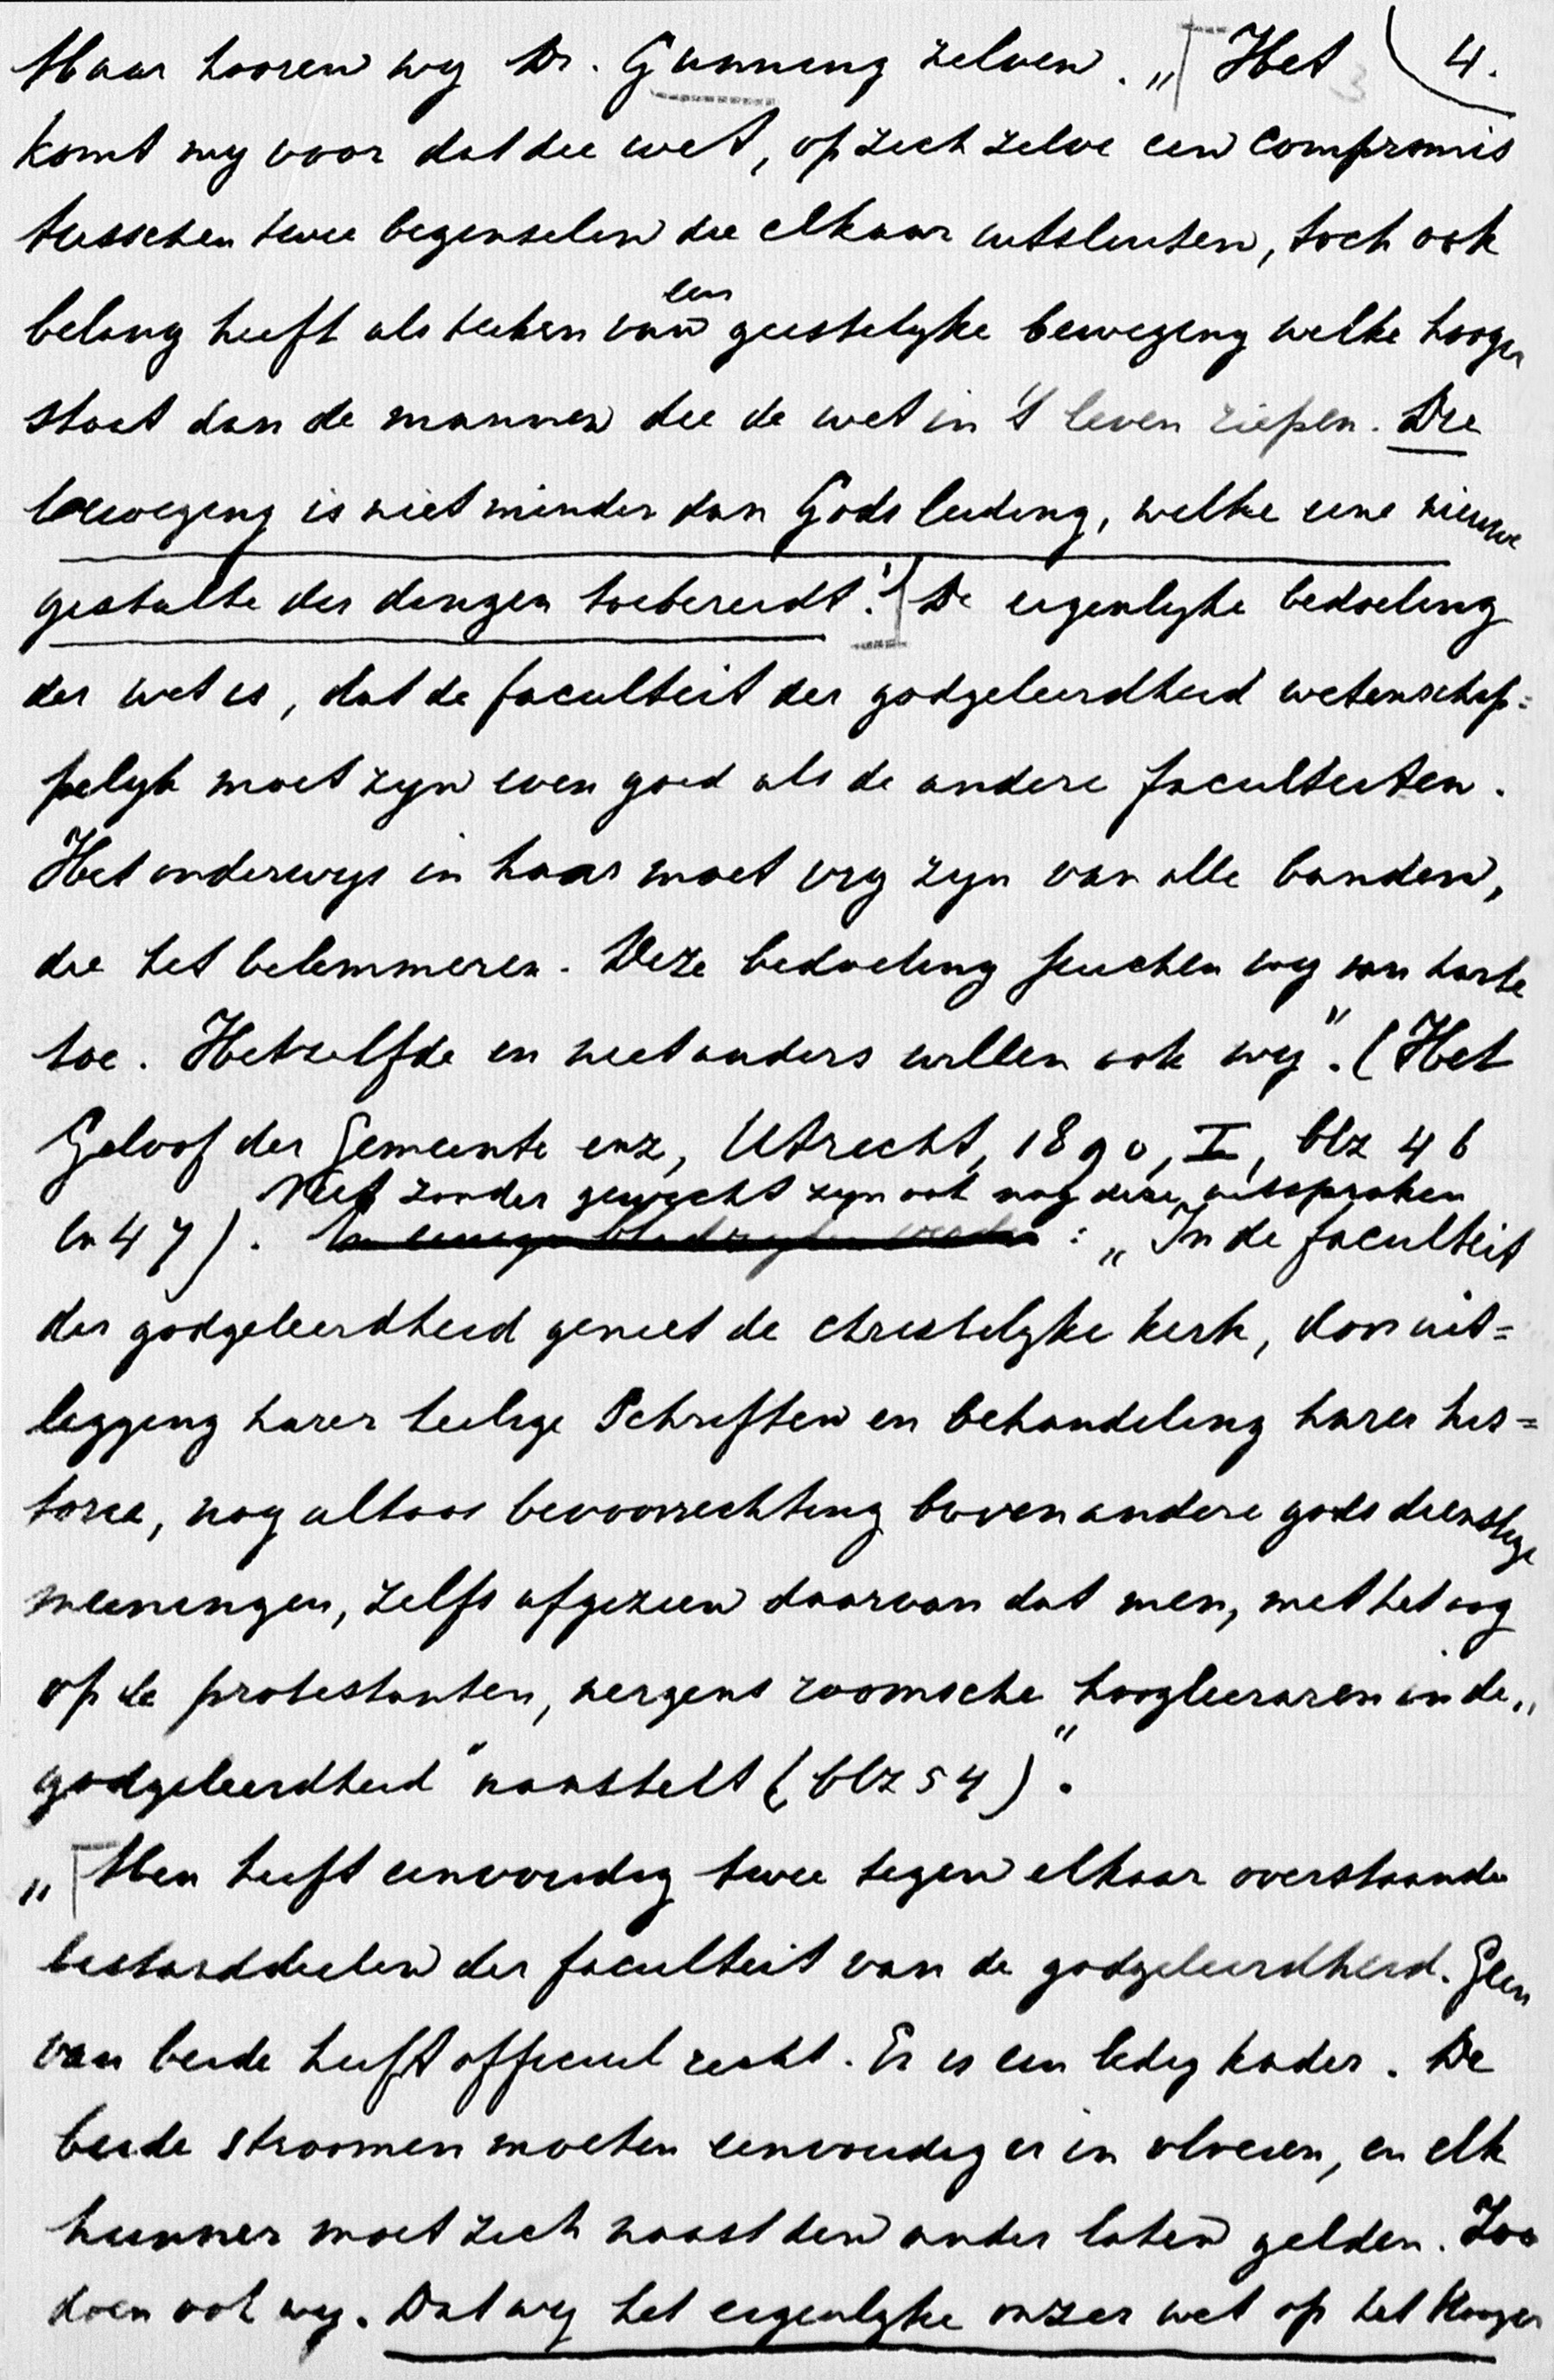 Maar hooren wy Dr. Gunning zelven. „ Het 4.
komt my voor dat die wet, op zich zelve een compromis
tusschen twee beginselen die elkaar uitsluiten, toch ook
een
belang heeft als teeken van geestelyke beweging welke hooger
staat dan de mannen die de wet in 't leven riepen. Die
beweging is niet minder dan Gods leiding, welke eene nieuwe
gestalte der dingen toebereidt. De eigenlyke bedoeling
der wet is, dat de faculteit der godgeleerdheid wetenschap=
pelyk moet zyn even goed als de andere faculteiten.
Het onderwys in haar moet vry zyn van alle banden,
die het belemmeren. Deze bedoeling juichen wy van harte
toe. Hetzelfde en niet anders willen ook wy". (Het
Geloof der Gemeente enz, Utrecht, 1890, I, blz 46
Niet zonder gewicht zyn ook nog deze uitspraken
en 47). : „ In de faculteit
der godgeleerdheid geniet de christelyke kerk, door uit=
legging harer heilige Schriften en behandeling harer his=
torie, nog altoos bevoorrechting boven andere godsdienstige
meeningen, zelfs afgezien daarvan dat men, met het oog
op de protestanten, nergens roomsche hoogleeraren in de „
godgeleerdheid" aanstelt (blz 54)".
„ Men heeft eenvoudig twee tegen elkaar overstaande
bestanddeelen der faculteit van de godgeleerdheid. Geen
van beide heeft officieel recht. Er is een ledig kader. De
beide stroomen moeten eenvoudig er in vloeien, en elk
hunner moet zich naast den ander laten gelden. Zoo
doen ook wy. Dat wy het eigenlyke onzer wet op het Hooger